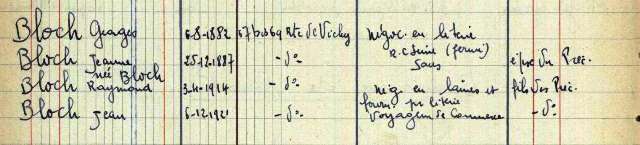 Bloch Georges 6-8-1882 67 bis 69 Rte de Vichy Négoc. en literie
R.C. Seine (fermé)
Bloch Jeanne 25-12-1887 -d°- Sans épse du Préc.
née Bloch
Bloch Raymond 3-4-1914 -d°- Nég. en laines et fils des Préc.
fourn. pr literie
Bloch Jean 6-12-1921 -d°- Voyageur de Commerce -d°